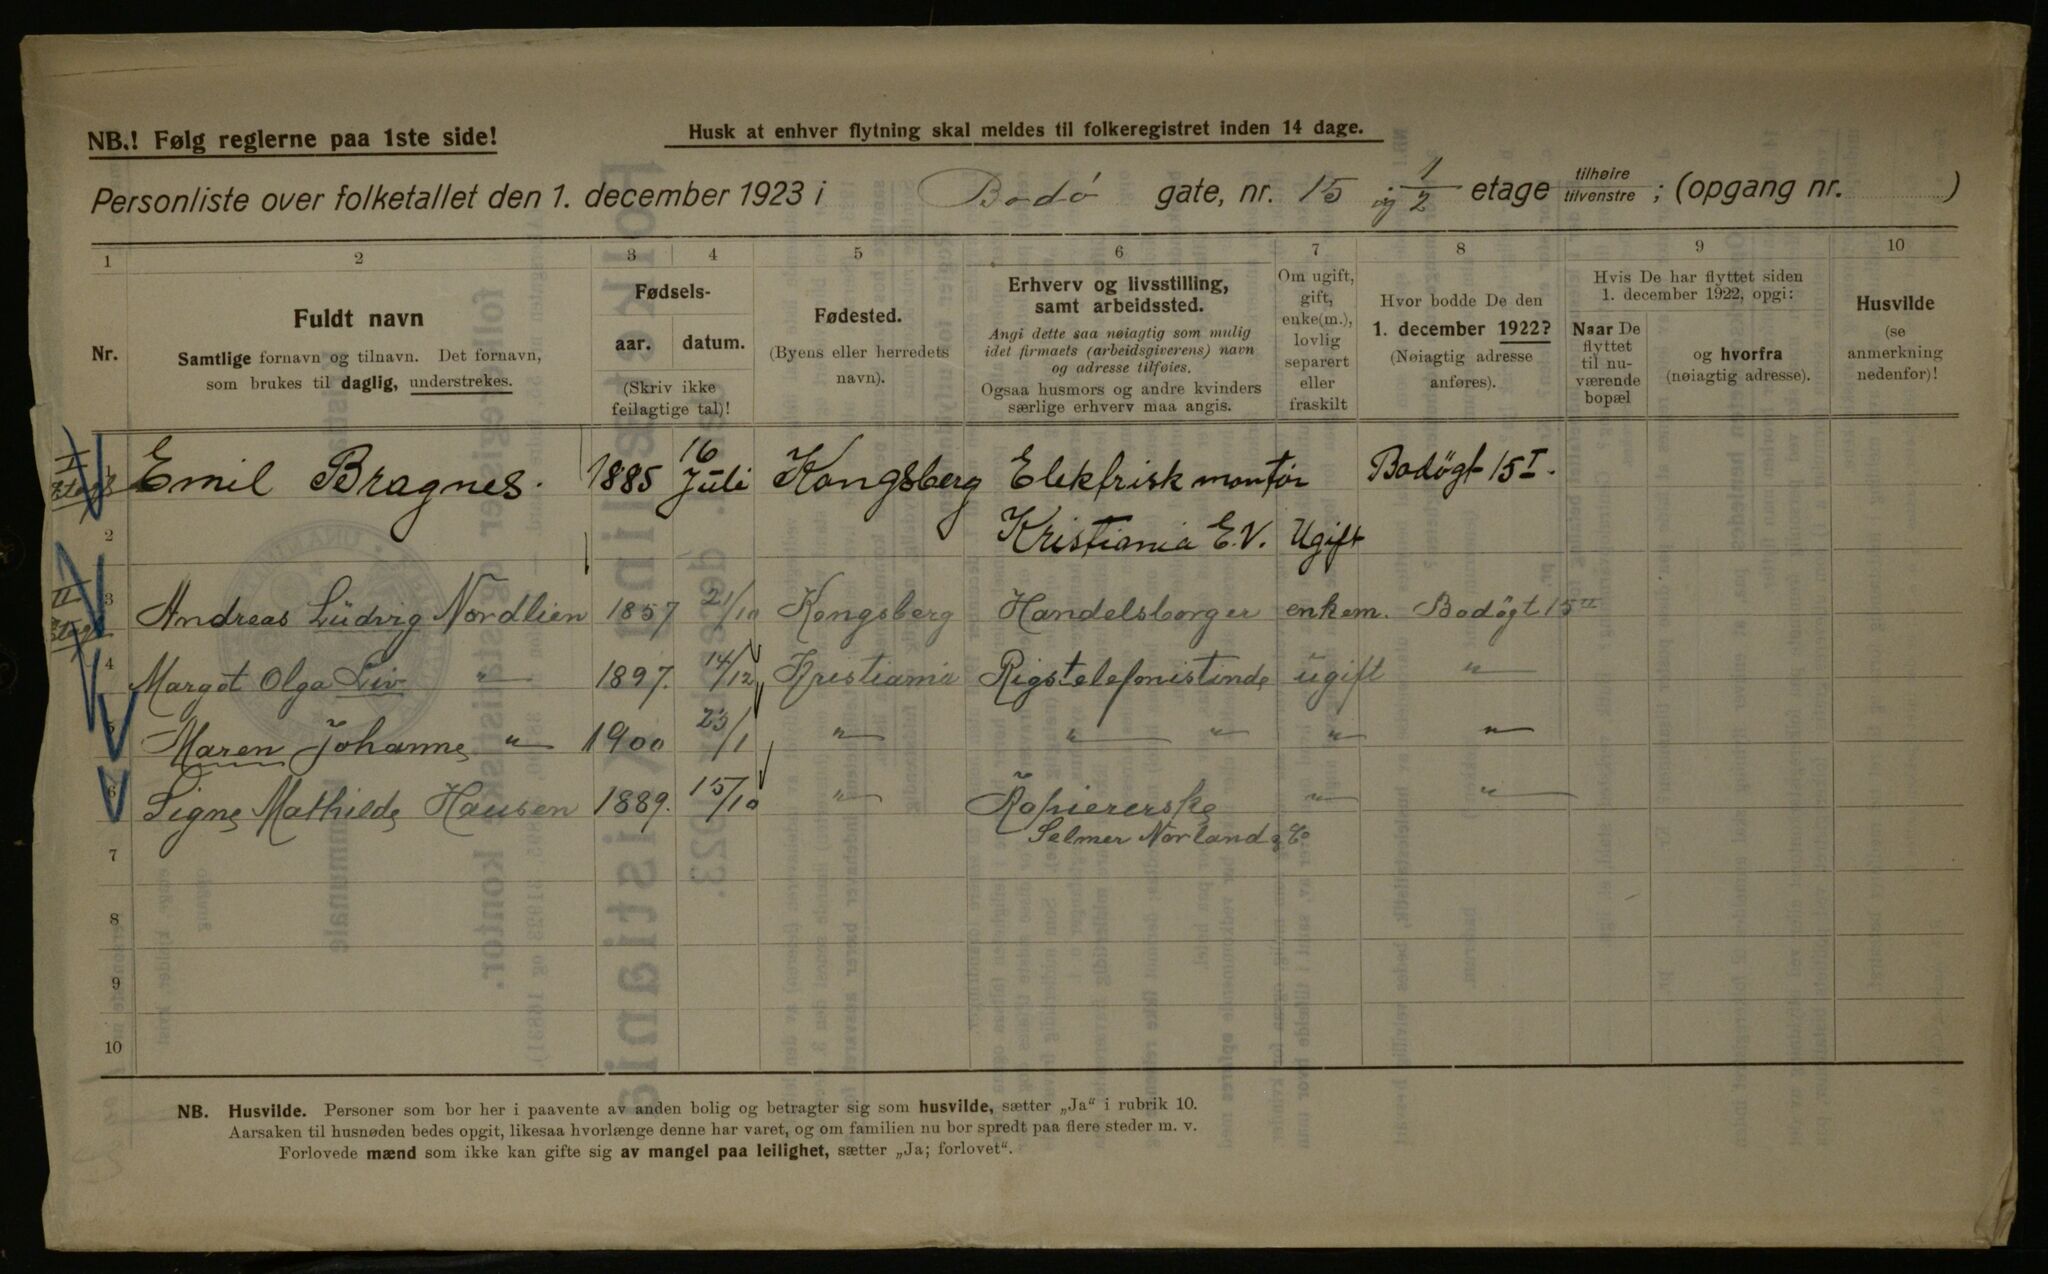 NB.! Følg reglerne paa 1ste side!
Husk at enhver flytning skal meldes til folkeregistret inden 14 dage.
Personliste over folketallet den 1. december 1923 i Bodø gate, nr. 15 1 og 2 etage tilhøire tilvenstre ; (opgang nr. )
1 2 3 4 5 6 7 8 9 10
Nr.
Fuldt navn
Samtlige fornavn og tilnavn. Det fornavn,
som brukes til daglig, understrekes.
Fødsels-
aar. datum.
(Skriv ikke
feilagtige tal)!
Fødested.
(Byens eller herredets
navn).
Erhverv og livsstilling,
samt arbeidssted.
Angi dette saa nøiagtig som mulig
idet firmaets (arbeidsgiverens) navn
og adresse tilføies.
Ogsaa husmors og andre kvinders
særlige erhverv maa angis.
Om ugift,
gift,
enke(m.),
lovlig
separert
eller
fraskilt
Hvor bodde De den
1. december 1922?
(Nøiagtig adresse
anføres).
Hvis De har flyttet siden
1. december 1922, opgi:
Naar De
flyttet
til nu-
værende
bopæl
og hvorfra
(nøiagtig adresse).
Husvilde
(se
anmerkning
nedenfor)!
I etage Emil Bragnes. 1885 16 Juli Kongsberg Elektrisk montør Bodøgt 15 I.
2 Kristiania E.V. Ugift
II etage 3 Andreas Ludvig Nordlien 1857 21/10 Kongsberg Handelsborger enkem. Bodøgt 15 II
4 Margot Olga Liv " 1897. 14/12 Kristiania Rigstelefonistinde ugift "
5 Maren Johanne " 1900 23/1 " " " " "
6 Signe Mathilde Hansen 1889. 15/10 " Kopiererske " "
Selmer Norland & Co
7
8
9
10
NB. Husvilde. Personer som bor her i paavente av anden bolig og betragter sig som husvilde, sætter „Ja“ i rubrik 10.
Aarsaken til husnøden bedes opgit, likesaa hvorlænge denne har varet, og om familien nu bor spredt paa flere steder m. v.
Forlovede mænd som ikke kan gifte sig av mangel paa leilighet, sætter „Ja; forlovet“.